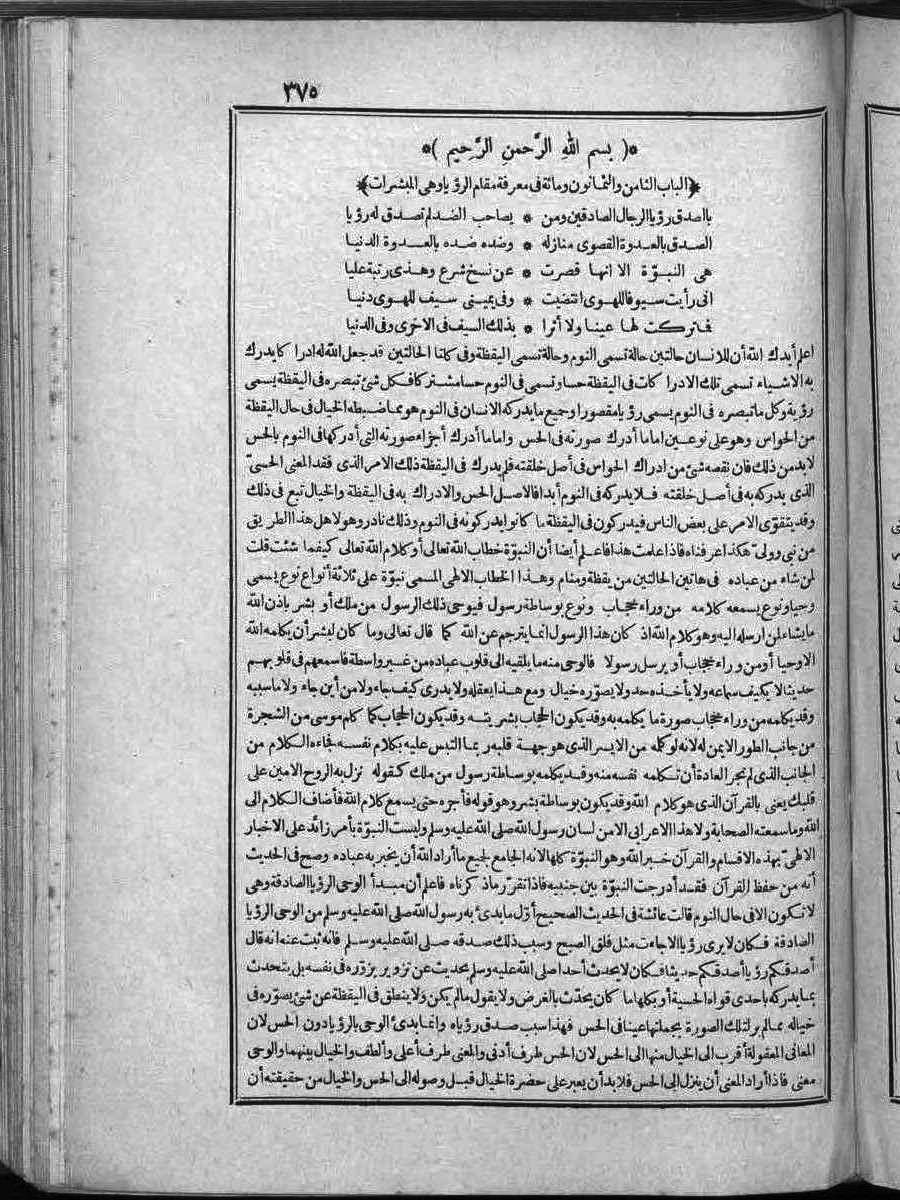 ٣٧٥
*( بسم الله الرَّحمنِ الرَّحِيم )*
﴿الباب الثامن والثمانون ومائة فى معرفة مقام الرؤيا وهى المبشرات﴾
بااصدق رؤيا الرجال الصادقين ومن * يصاحب الضد لم تصدق له رؤيا
الصدق بالعدوة القصوى منازله * وضده ضده بالعدوة الدنيا
هى النبوّة الا انها قصرت * عن نسخ شرع وهذى رتبة عليا
انى رأيت سيوفا للهوى انتضيت * وفى يمينى سيف للهوى دنيا
فما تركت لها عينا ولا أثرا * بذلك السيف فى الاخرى وفى الدنيا
اعلم أيدك الله أن للانسان حالتين حالة تسمى النوم وحالة تسمى اليقظة وفى كلتا الحالتين قد جعل الله له ادرا كا يدرك
به الاشياء تسمى تلك الادراكات فى اليقظة حسا وتسمى فى النوم حسا مشتركا فكل شئ تبصره فى اليقظة يسمى
رؤية وكل ما تبصره فى النوم يسمى رؤيا مقصورا وجميع ما يدركه الانسان فى النوم هو مما ضبطه الخيال فى حال اليقظة
من الحواس وهو على نوعين اما ما أدرك صورته فى الحس واما ما أدرك أجزاء صورته التى أدركها فى النوم بالحس
لا بد من ذلك فان نقصه شئ من ادراك الحواس فى أصل خلقته فلم يدرك فى اليقظة ذلك الامر الذى فقد المعنى الحسىّ
الذى يدركه به فى أصل خلقته فلا يدركه فى النوم أبدا فالاصل الحس والادراك به فى اليقظة والخيال تبع فى ذلك
وقد يتقوّى الامر على بعض الناس فيدركون فى اليقظة ما كانوا يدركونه فى النوم وذلك نادر وهو لاهل هذا الطريق
من نبى وولىّ هكذا عرفناه فاذا علمت هذا فاعلم أيضا أن النبوّة خطاب الله تعالى أو كلام الله تعالى كيفما شئت قلت
لمن شاء من عباده فى هاتين الحالتين من يقظة ومنام وهذا الخطاب الالهى المسمى نبوّة على ثلاثة أنواع نوع يسمى
وحيا ونوع يسمعه كلامه من وراء حجاب ونوع بوساطة رسول فيوحى ذلك الرسول من ملك أو بشر باذن الله
ما يشاء لمن ارسله اليه وهو كلام الله اذ كان هذا الرسول انما يترجم عن الله كما قال تعالى وما كان لبشر أن يكلمه الله
الا وحيا أو من وراء حجاب أو يرسل رسولا فالوحى منه ما يلقيه الى قلوب عباده من غير واسطة فاسمعهم فى قلوبهم
حديثا لا يكيف سماعه ولا يأخذه حد ولا يصوّره خيال ومع هذا يعقله ولا يدرى كيف جاء ولا من أين جاء ولا ما سببه
وقد يكلمه من وراء حجاب صورة ما يكلمه به وقد يكون الحجاب بشريته وقد يكون الحجاب كما كلم موسى من الشجرة
من جانب الطور الايمن له لانه لو كله من الايسر الذى هو جهة قلبه ربما التبس عليه بكلام نفسه فجاءه الكلام من
الجانب الذى لم تجر العادة أن تكلمه نفسه منه وقد يكلمه بوساطة رسول من ملك كقوله نزل به الروح الامين على
قلبك يعنى بالقرآن الذى هو كلام الله وقد يكون بوساطة بشر وهو قوله فأجره حتى يسمع كلام الله فأضاف الكلام الى
الله وما سمعته الصحابة ولا هذا الاعرابى الا من لسان رسول الله صلى الله عليه وسلم وليست النبوّة بأمر زائد على الاخبار
الالهىّ بهذه الاقسام والقرآن خبر الله وهو النبوّة كلها لانه الجامع لجميع ما أراد الله أن يخبر به عباده وصح فى الحديث
أنه من حفظ القرآن فقد أدرجت النبوّة بين جنبيه فاذا تقرّر ما ذكرناه فاعلم أن مبدأ الوحى الرؤيا الصادقة وهى
لا تكون الا فى حال النوم قالت عائشة فى الحديث الصحيح أوّل ما بدئ به رسول الله صلى الله عليه وسلم من الوحى الرؤيا
الصادقة فكان لا يرى رؤيا الا جاءت مثل فلق الصبح وسبب ذلك صدقه صلى الله عليه وسلم فانه ثبت عنه انه قال
أصدقكم رؤيا أصدقكم حديثا فكان لا يحدث أحدا صلى الله عليه وسلم بحديث عن تزوير يزوّره فى نفسه بل يتحدث
بما يدركه باحدى قواه الحسية أو بكلها ما كان يحدّث بالغرض ولا يقول ما لم يكن ولا ينطق فى اليقظة عن شئ يصوّره فى
خياله مما لم ير لتلك الصورة بجملتها عينا فى الحس فهذا سبب صدق رؤياه وانما بدئ الوحى بالرؤيا دون الحس لان
المعانى المعقولة أقرب الى الخيال منها الى الحس لان الحس طرف أدنى والمعنى طرف أعلى وألطف والخيال بينهما والوحى
معنى فاذا أراد المعنى أن ينزل الى الحس فلا بد أن يعبر على حضرة الخيال قبل وصوله الى الحس والخيال من حقيقته أن